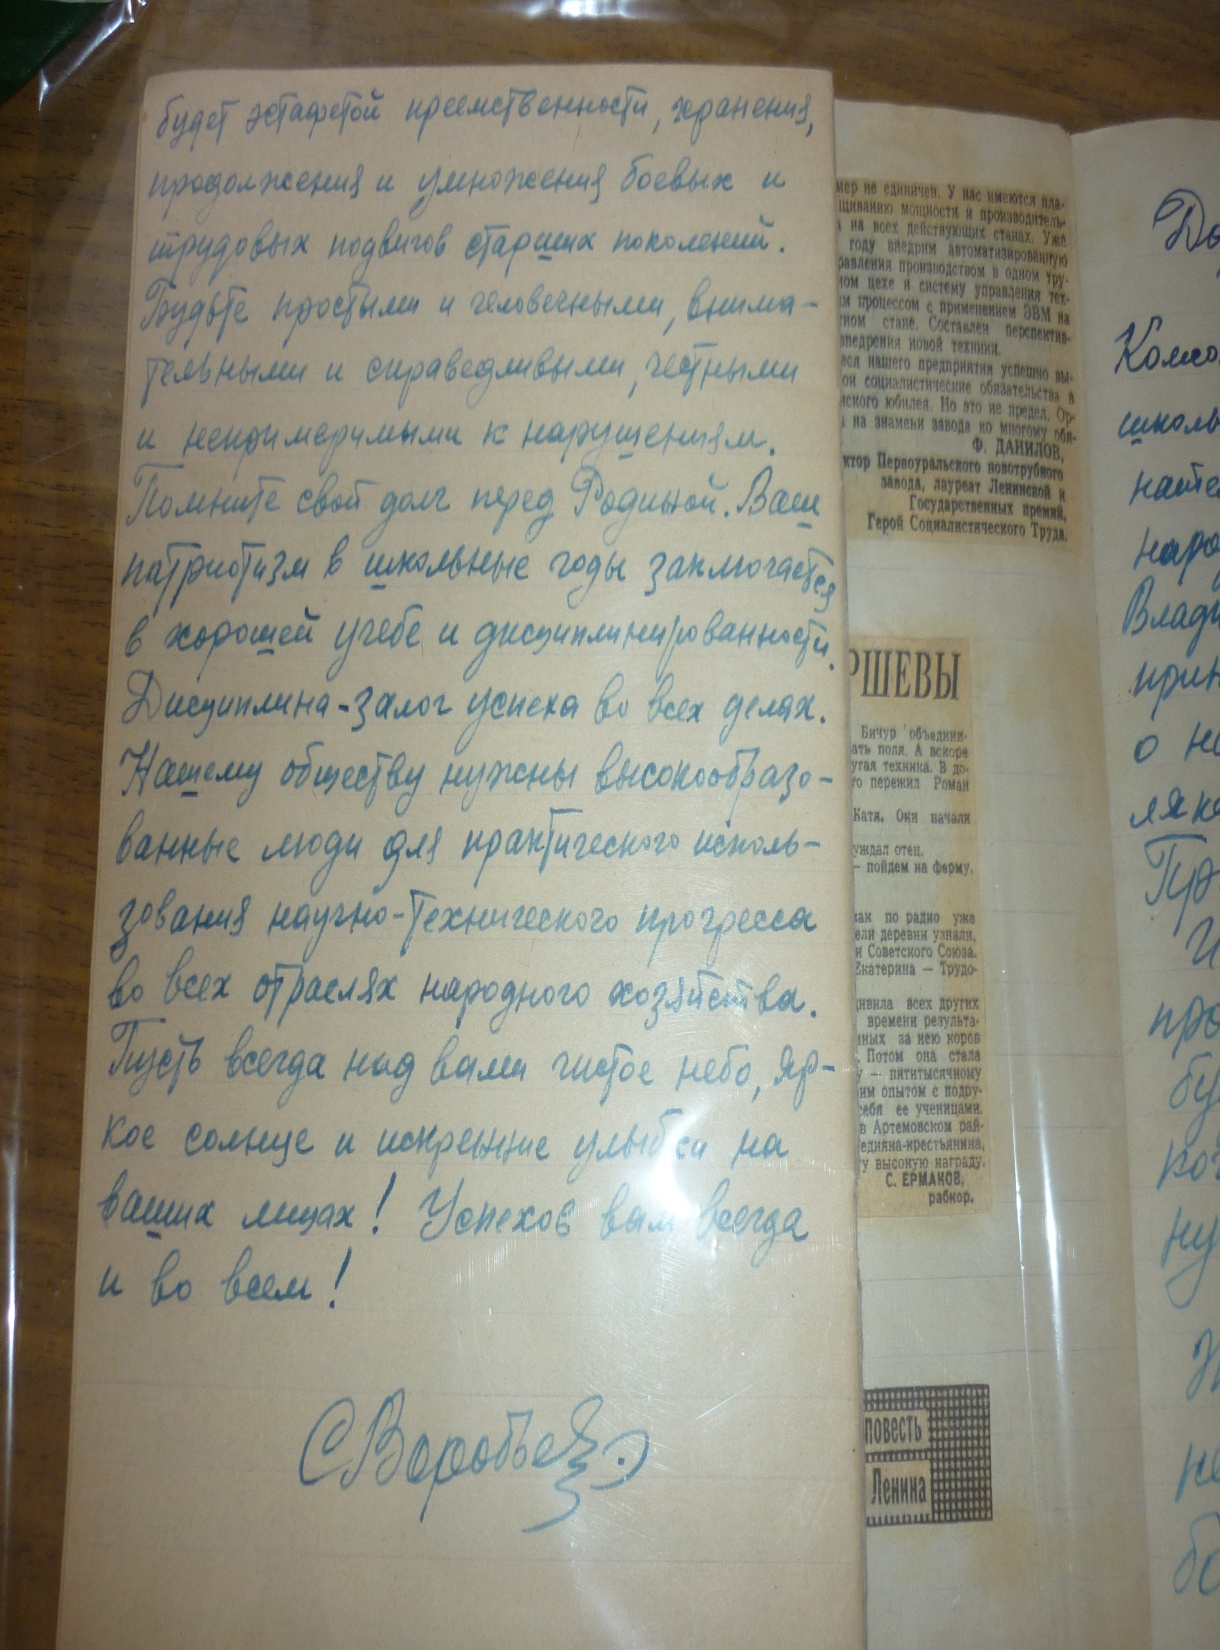 будет эстафетой преемственности, хранения,
продолжения и умножения боевых и
трудовых подвигов старших поколений.
Будьте простыми и человечными, внима-
тельными и справедливыми, честными
и непримиримыми к нарушениям.
Помните свой долг перед Родиной. Ваш
патриотизм в школьные годы заключается
в хорошей учебе и дисциплинированности.
Дисциплина - залог успеха во всех делах.
Нашему обществу нужны высокообразо-
ванные люди для практического исполь-
зования научно-технического прогресса
во всех отраслях народного хозяйства.
Пусть всегда над вами чистое небо, яр-
кое солнце и искренние улыбки на
ваших лицах! Успехов вам всегда
и во всем!
СВоробьев
мер не единичен. У нас имеются пла-
щиванию мощности и производитель-
на всех действующих станах. Уже
году внедрим автоматизированную
равления производством в одном тру-
ном цехе и систему управления тех-
процессом с применением ЭВМ на
стане. Составлен перспектив-
внедрения новой техники.
нашего предприятия успешно вы-
социалистические обязательства в
юбилея. Но это не предел. Ор-
на знамени завода ко многому обя-
Ф. ДАНИЛОВ,
ктор Первоуральского новотрубного
завода, лауреат Ленинской и
Государственных премий,
Герой Социалистического Труда.
РШЕВЫ
Бичур объедини-
ать поля. А вскоре
угая техника. В до-
го пережил Роман
Катя. Они начали
уждал отец.
— пойдем на ферму.
как по радио уже
ели деревни узнали,
и Советского Союза.
Екатерина — Трудо-
дивила всех других
времени результа-
нных за нею коров
Потом она стала
у — пятитысячному
им опытом с подру-
себя ее ученицами.
в Артемовском рай-
едняка-крестьянина,
у высокую награду.
С. ЕРМАКОВ,
рабкор.
повесть
Ленина
До
Комсо
школь
наро
Влади
прин
о не
про
бу
ну
не
бо